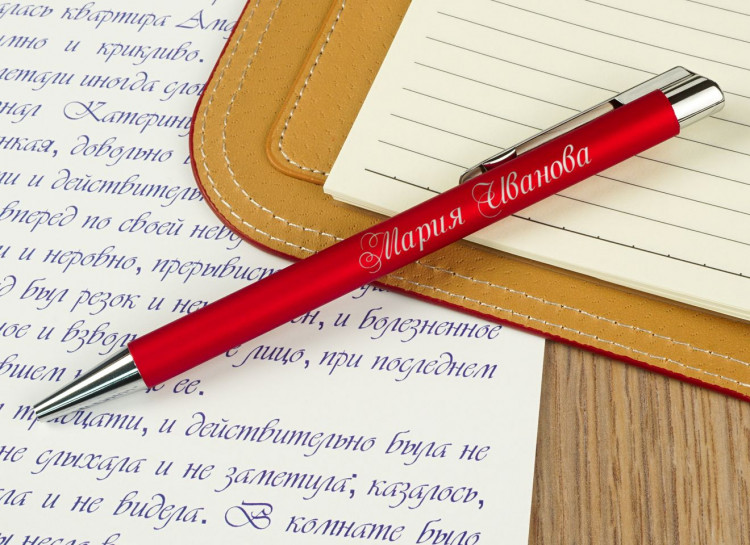 лась квартира Ама
мно и крикливо.
летали иногда сло
Катерин
нкая, довольно
ти и действительн
вперед по своей неб
и и неровно, прерывис
д был резок и не ен, и болезненное
ное и взвол е лицо, при последнем
вшем ее.
тридцати, и действительно была не
не слыхала и не заметила; казалось,
ла и не видела. В комнате было
Мария Иванова